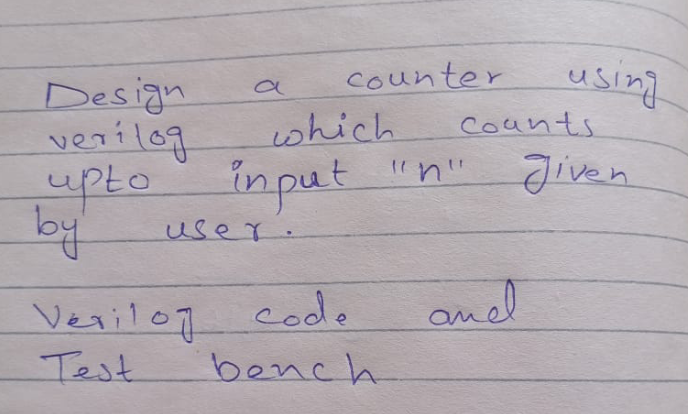 Design a counter using
verilog which counts
upto input "n" given
by user.
Verilog code and
Test bench